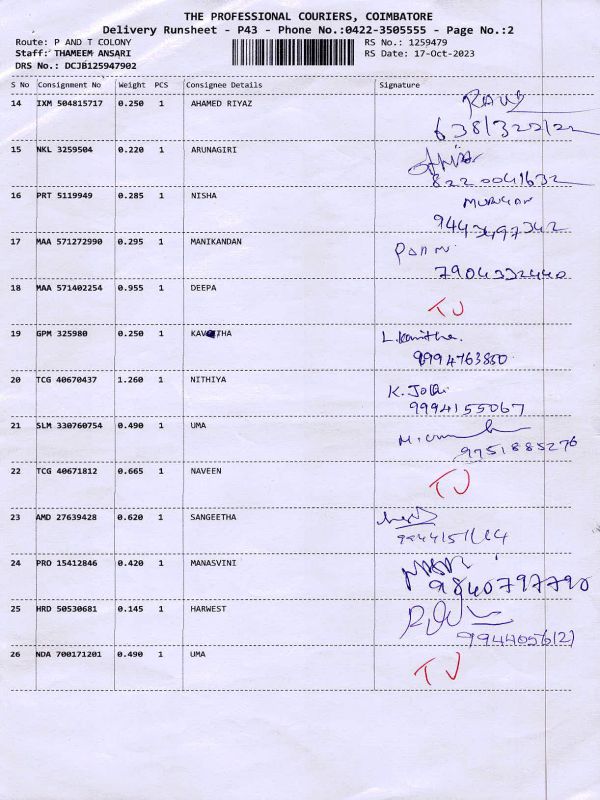 THE PROFESSIONAL COURIERS, COIMBATORE
Delivery Runsheet - P43 - Phone No.:0422-3505555 - Page No.:2
Route: P AND T COLONY RS No.: 1259479
Staff: THAMEEM ANSARI RS Date: 17-Oct-2023
DRS No.: DCJB125947902
S No Consignment No Weight PCS Consignee Details Signature
14 IXM 504815717 0.250 1 AHAMED RIYAZ
15 NKL 3259504 0.220 1 ARUNAGIRI
8220041632
16 PRT 5119949 0.285 1 NISHA MURUGAN
9443497342
17 MAA 571272990 0.295 1 MANIKANDAN
7904332440
18 MAA 571402254 0.955 1 DEEPA TJ
19 GPM 325980 0.250 1 KAVITHA L. Kavitha.
9994763850
20 TCG 40670437 1.260 1 NITHIYA K. Jothi
9994155067
21 SLM 330760754 0.490 1 UMA
9751885276
22 TCG 40671812 0.665 1 NAVEEN TJ
23 AMD 27639428 0.620 1 SANGEETHA
24 PRO 15412846 0.420 1 MANASVINI
9840797790
25 HRD 50530681 0.145 1 HARWEST
26 NDA 700171201 0.490 1 UMA TJ